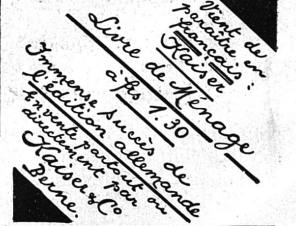 Vient de
paraître en
français:
Kaiser
Livre de Ménage
à frs 1.30
Immense succès de
l'édition allemande
En vente partout ou
directement par
Kaiser & Co
Berne.